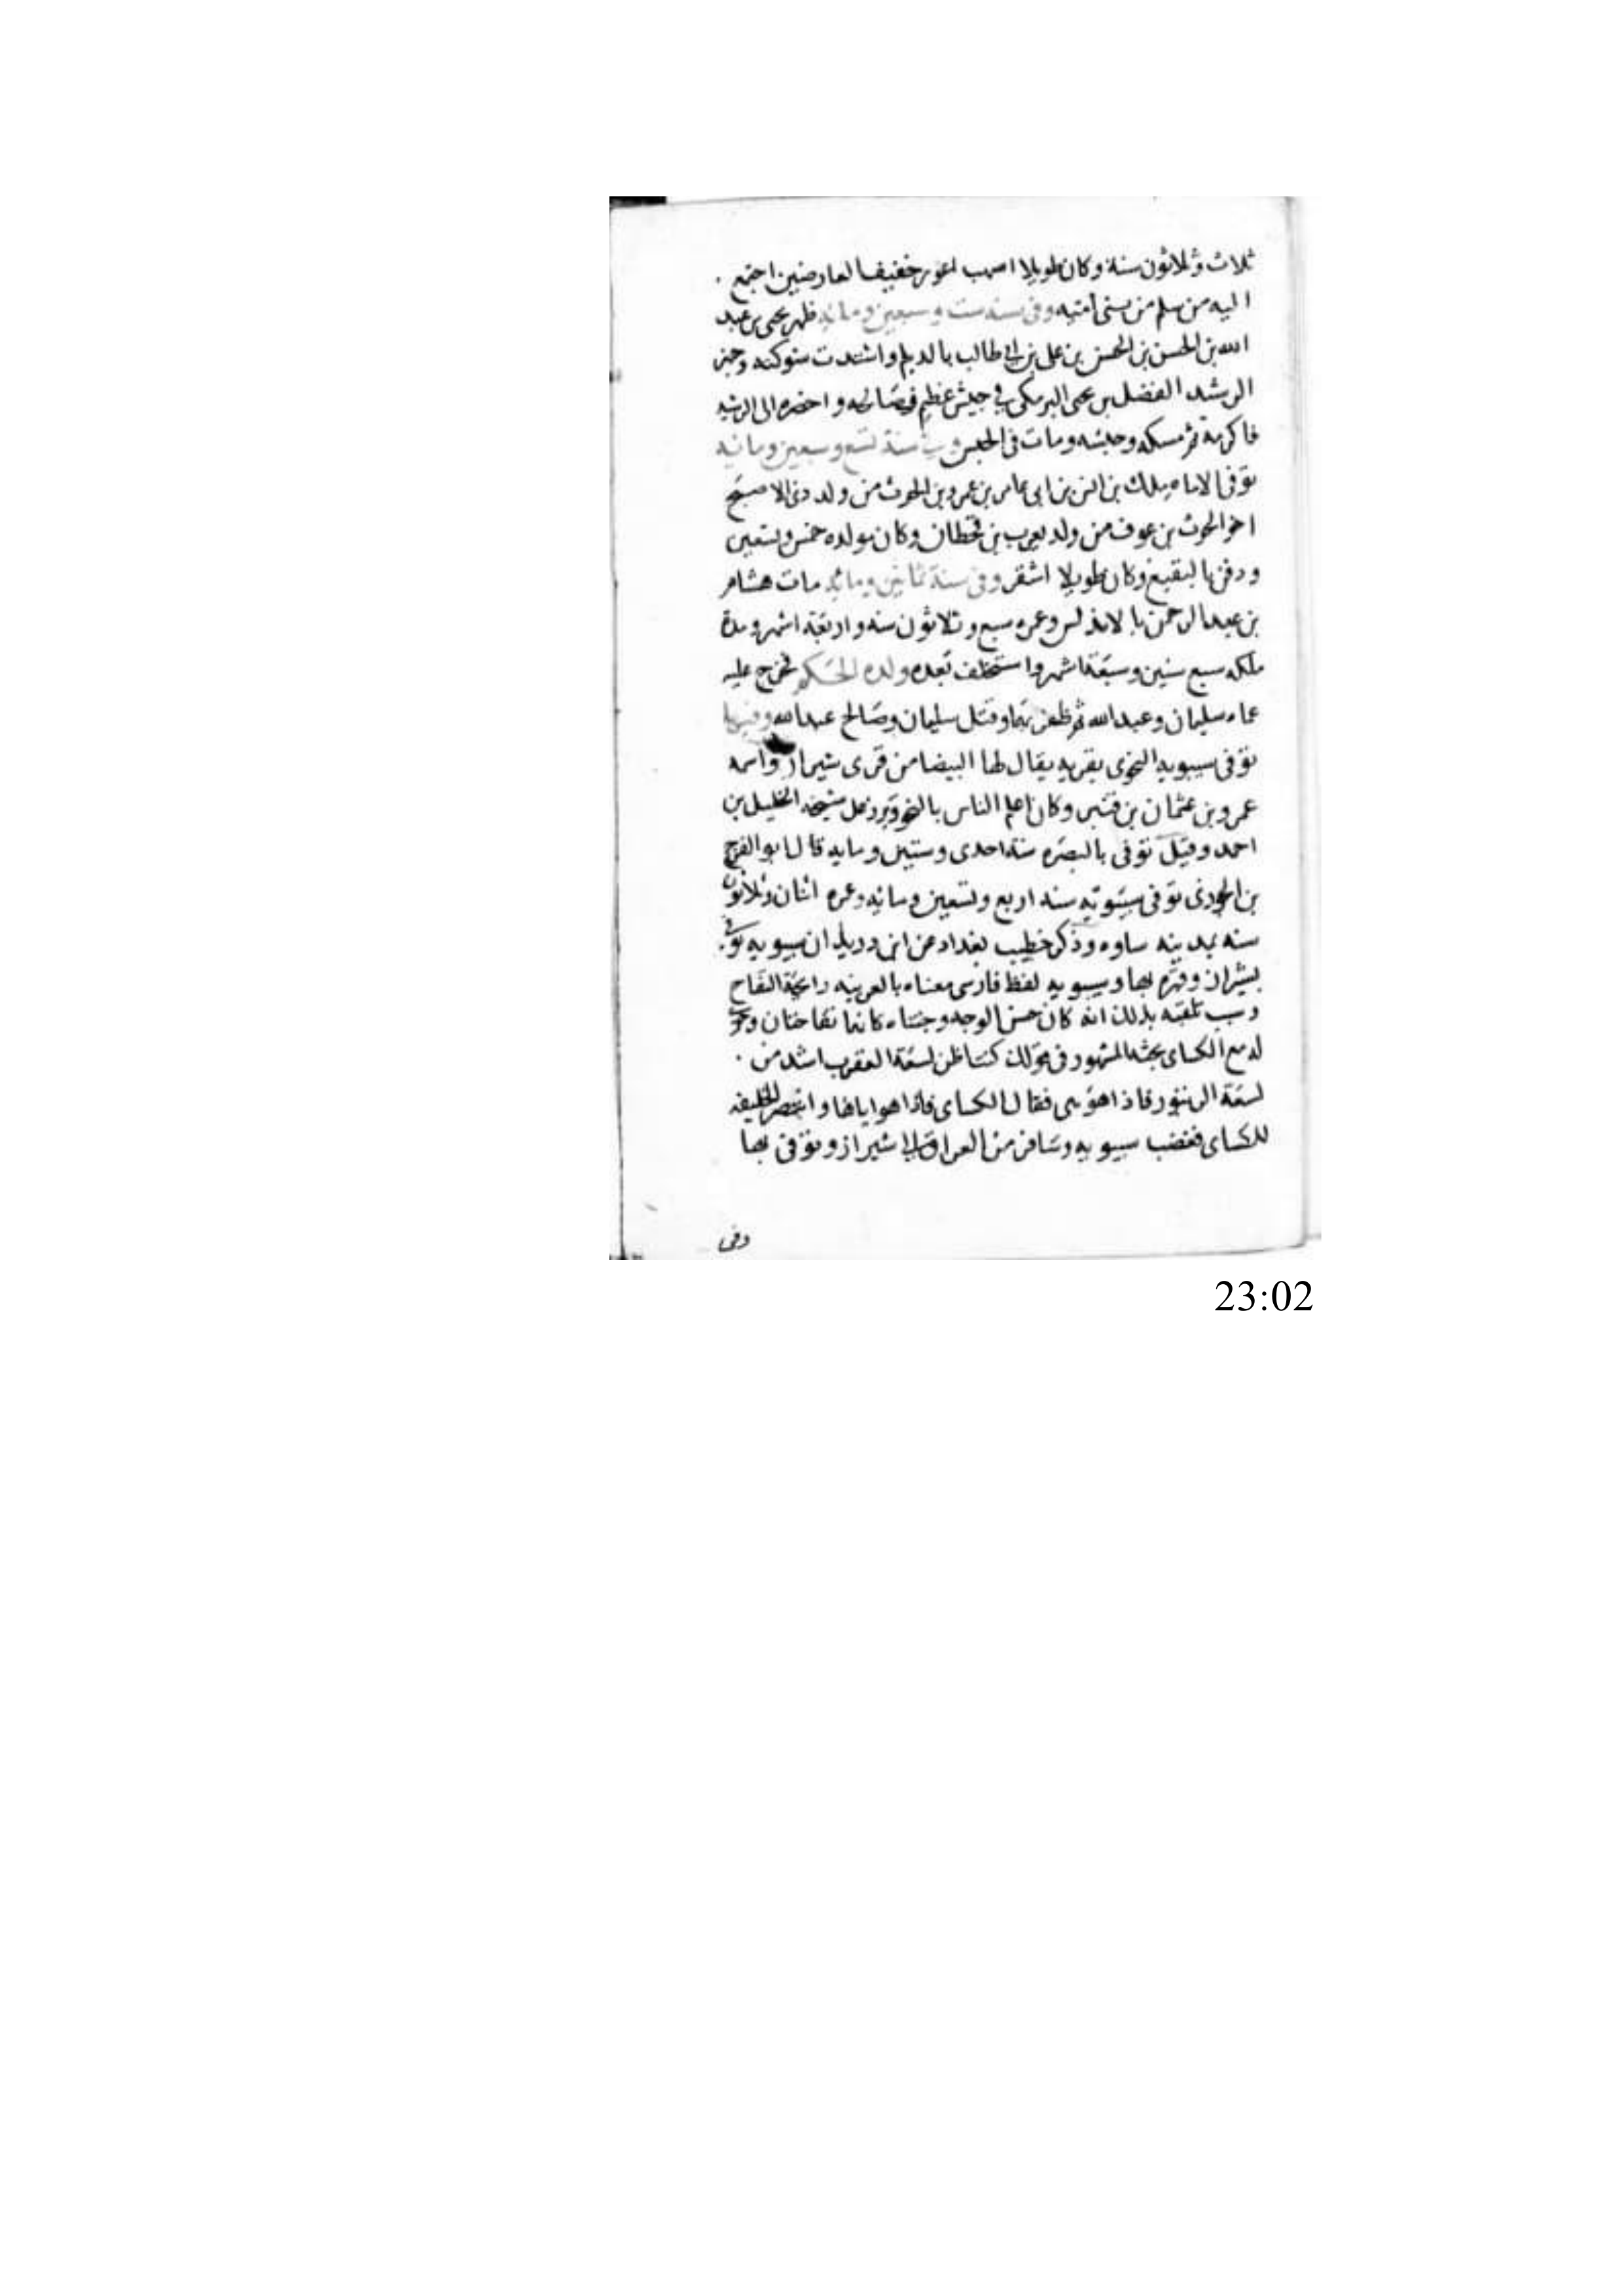 ثلاث وثلاثون سنة وكان طويلا اصهب اعور خفيف العارضين اجتمع
اليه من سلم من بنى امية وفى سنة ست وسبعين ومائه ظهر يحيى بن عبد
الله بن الحسن بن الحسن بن على بن ابى طالب بالديلم واشتدت شوكته وجهز
الرشيد الفضل بن يحيى البرمكى فى جيش عظيم فصالحه واحضره الى الرشيد
فاكرمه ثم مسكه وحبسه ومات فى الحبس وفى سنة تسع وسبعين ومائه
توفى الامام ملك بن انس بن ابى عامر بن عمرو بن الحرث من ولد ذى الاصبح
اخو الحرث بن عوف من ولد يعرب بن قحطان وكان مولده خمس وتسعين
ودفن بالبقيع وكان طويلا اشقر وفى سنة ثمانين ومائه مات هشام
بن عبد الرحمن بالاندلس وعمره سبع وثلاثون سنه واربعة اشهر ومدة
ملكه سبع سنين وسبعة اشهر واستخلف بعده ولده الحكم فخرج عليه
عماه سليمان وعبد الله ثم ظفر بهما وقتل سليمان وصالح عبد الله وفيها
توفى سيبويه النحوى بقريه يقال لها البيضا من قرى شيراز واسمه
عمرو بن عثمان بن قنبر وكان اعلم الناس بالنحو وبرد على شيخه الخليل بن
احمد وقيل توفى بالبصره سنة احدى وستين ومايه قال ابو الفرج
بن الجوزى توفى سيبويه سنه اربع وتسعين ومائه وعمره اثنان وثلاثون
سنه بمدينه ساوه وذكر خطيب بغداد عن ابن دريد ان سيبويه توفى
بشيراز وقبره بها وسيبويه لفظ فارسى معناه بالعربيه رايحة التفاح
وسبب تلقبه بذلك انه كان حسن الوجه وجنتاه كانهما تفاحتان وجرى
له مع الكساى بحثه المشهور فى قولك كنت اظن لسعة العقرب اشد من
لسعة الزنبور فاذا هو هى فقال الكساى فاذا هو اياها وانتصر الخليفه
للكساى فغضب سيبويه وسافر من العراق الى شيراز وتوفى بها
وفى
23:02